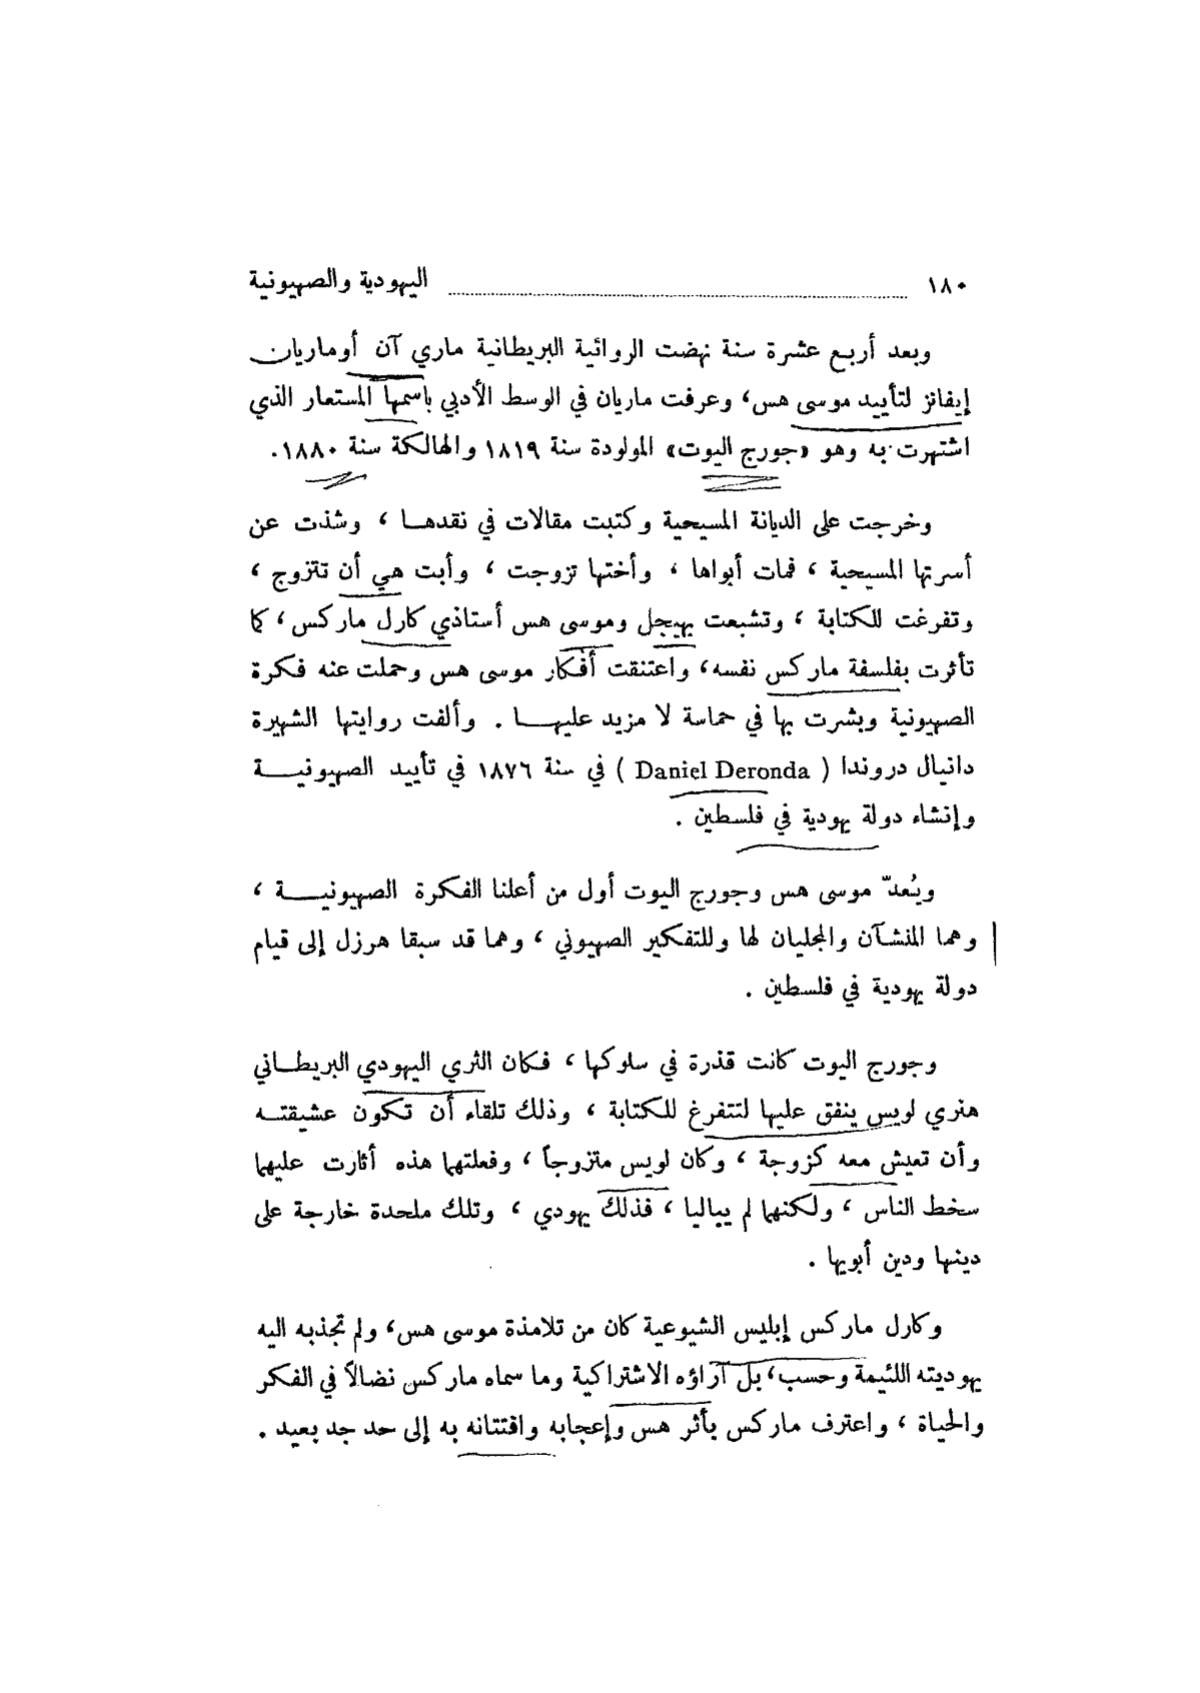 ١٨٠ اليهودية والصهيونية
وبعد أربع عشرة سنة نهضت الروائية البريطانية ماري آن أوماريان
إيفانز لتأييد موسى هس، وعرفت ماريان في الوسط الأدبي باسمها المستعار الذي
اشتهرت به وهو «جورج اليوت» المولودة سنة ١٨١٩ والهالكة سنة ١٨٨٠.
وخرجت على الديانة المسيحية وكتبت مقالات في نقدهـا ، وشذت عن
أسرتها المسيحية ، فمات أبواها ، وأختها تزوجت ، وأبت هي أن تتزوج ،
وتفرغت للكتابة ، وتشبعت بهيجل وموسى هس أستاذي كارل ماركس ، كما
تأثرت بفلسفة ماركس نفسه، واعتنقت أفكار موسى هس وحملت عنه فكرة
الصهيونية وبشرت بها في حماسة لا مزيد عليهـا . وألفت روايتها الشهيرة
دانيال دروندا ( Daniel Deronda ) في سنة ١٨٧٦ في تأييد الصهيونيـة
وإنشاء دولة يهودية في فلسطين .
ويُعدّ موسى هس وجورج اليوت أول من أعلنا الفكرة الصهيونيـة ،
وهما المنشآن والمجليان لها وللتفكير الصهيوني ، وهما قد سبقا هرزل إلى قيام
دولة يهودية في فلسطين .
وجورج اليوت كانت قذرة في سلوكها ، فكان الثري اليهودي البريطـاني
هنري لويس ينفق عليها لتتفرغ للكتابة ، وذلك تلقاء أن تكون عشيقتـه
وأن تعيش معه كزوجة ، وكان لويس متزوجاً ، وفعلتهما هذه أثارت عليهما
سخط الناس ، ولكنهما لم يباليا ، فذلك يهودي ، وتلك ملحدة خارجة على
دينها ودين أبويها .
وكارل ماركس إبليس الشيوعية كان من تلامذة موسى هس، ولم تجذبه اليه
يهوديته اللئيمة وحسب، بل آراؤه الاشتراكية وما سماه ماركس نضالاً في الفكر
والحياة ، واعترف ماركس بأثر هس وإعجابه وافتتانه به إلى حد جد بعيد .